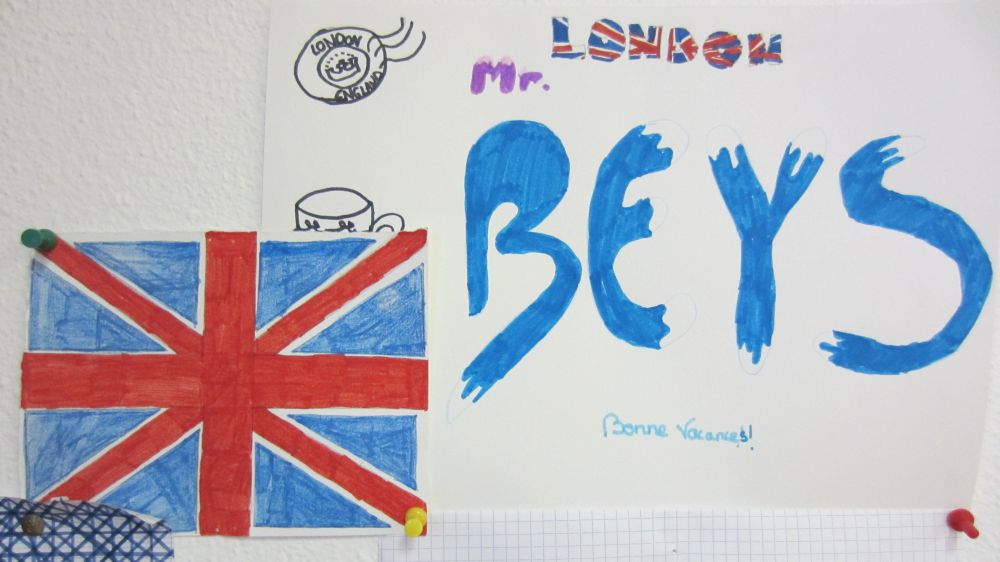 LONDON
ENGLAND
LONDON
Mr.
BEYS
Bonne Vacances!